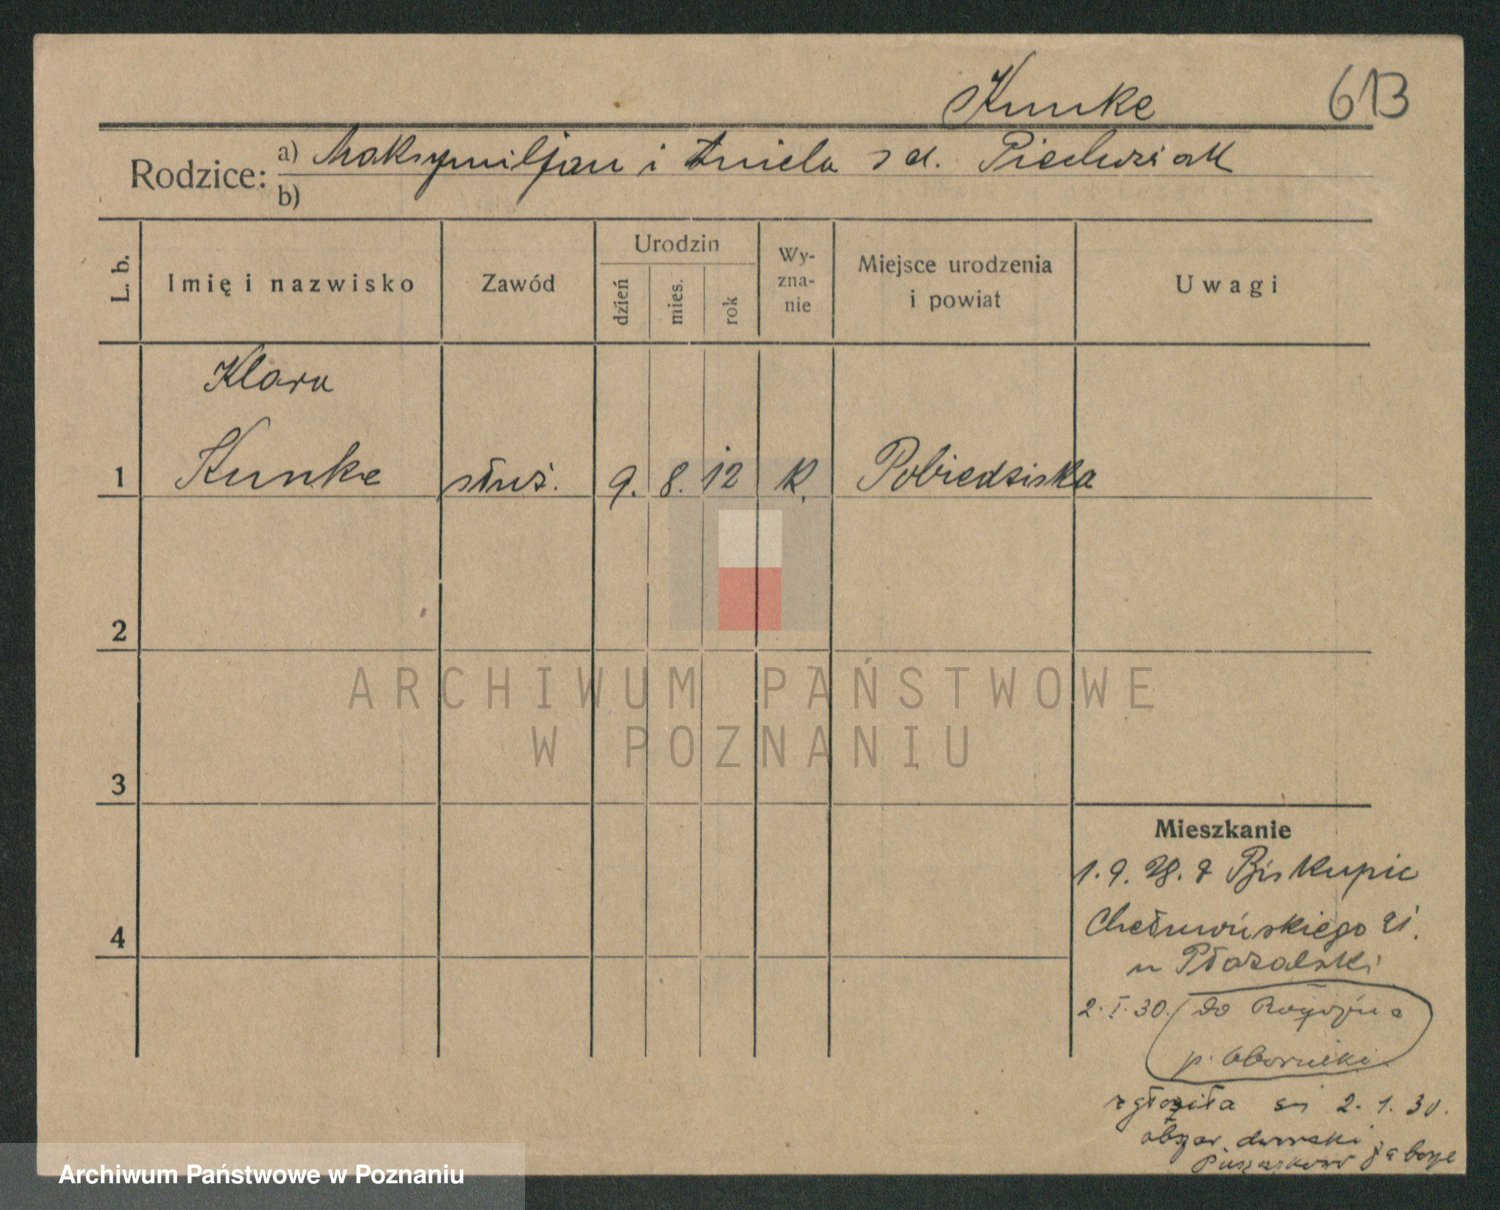 Kunke 613
Rodzice: a) Maksymiljan i Aniela z d. Piechociak
b)
L. b. Imię i nazwisko Zawód Urodzin dzień mies. rok Wy-zna-nie Miejsce urodzenia i powiat Uwagi
Klara
1 Kunke służ. 9. 8. 12 k. Pobiedziska
2
3
4
Mieszkanie
1. 9. 28. z Biskupic
Chełmońskiego 21.
u
2. I. 30. do Rogoźna
p. Oborniki
zgłosiła się 2. 1. 30.
obszar dworski
ARCHIWUM PAŃSTWOWE
W POZNANIU
Archiwum Państwowe w Poznaniu